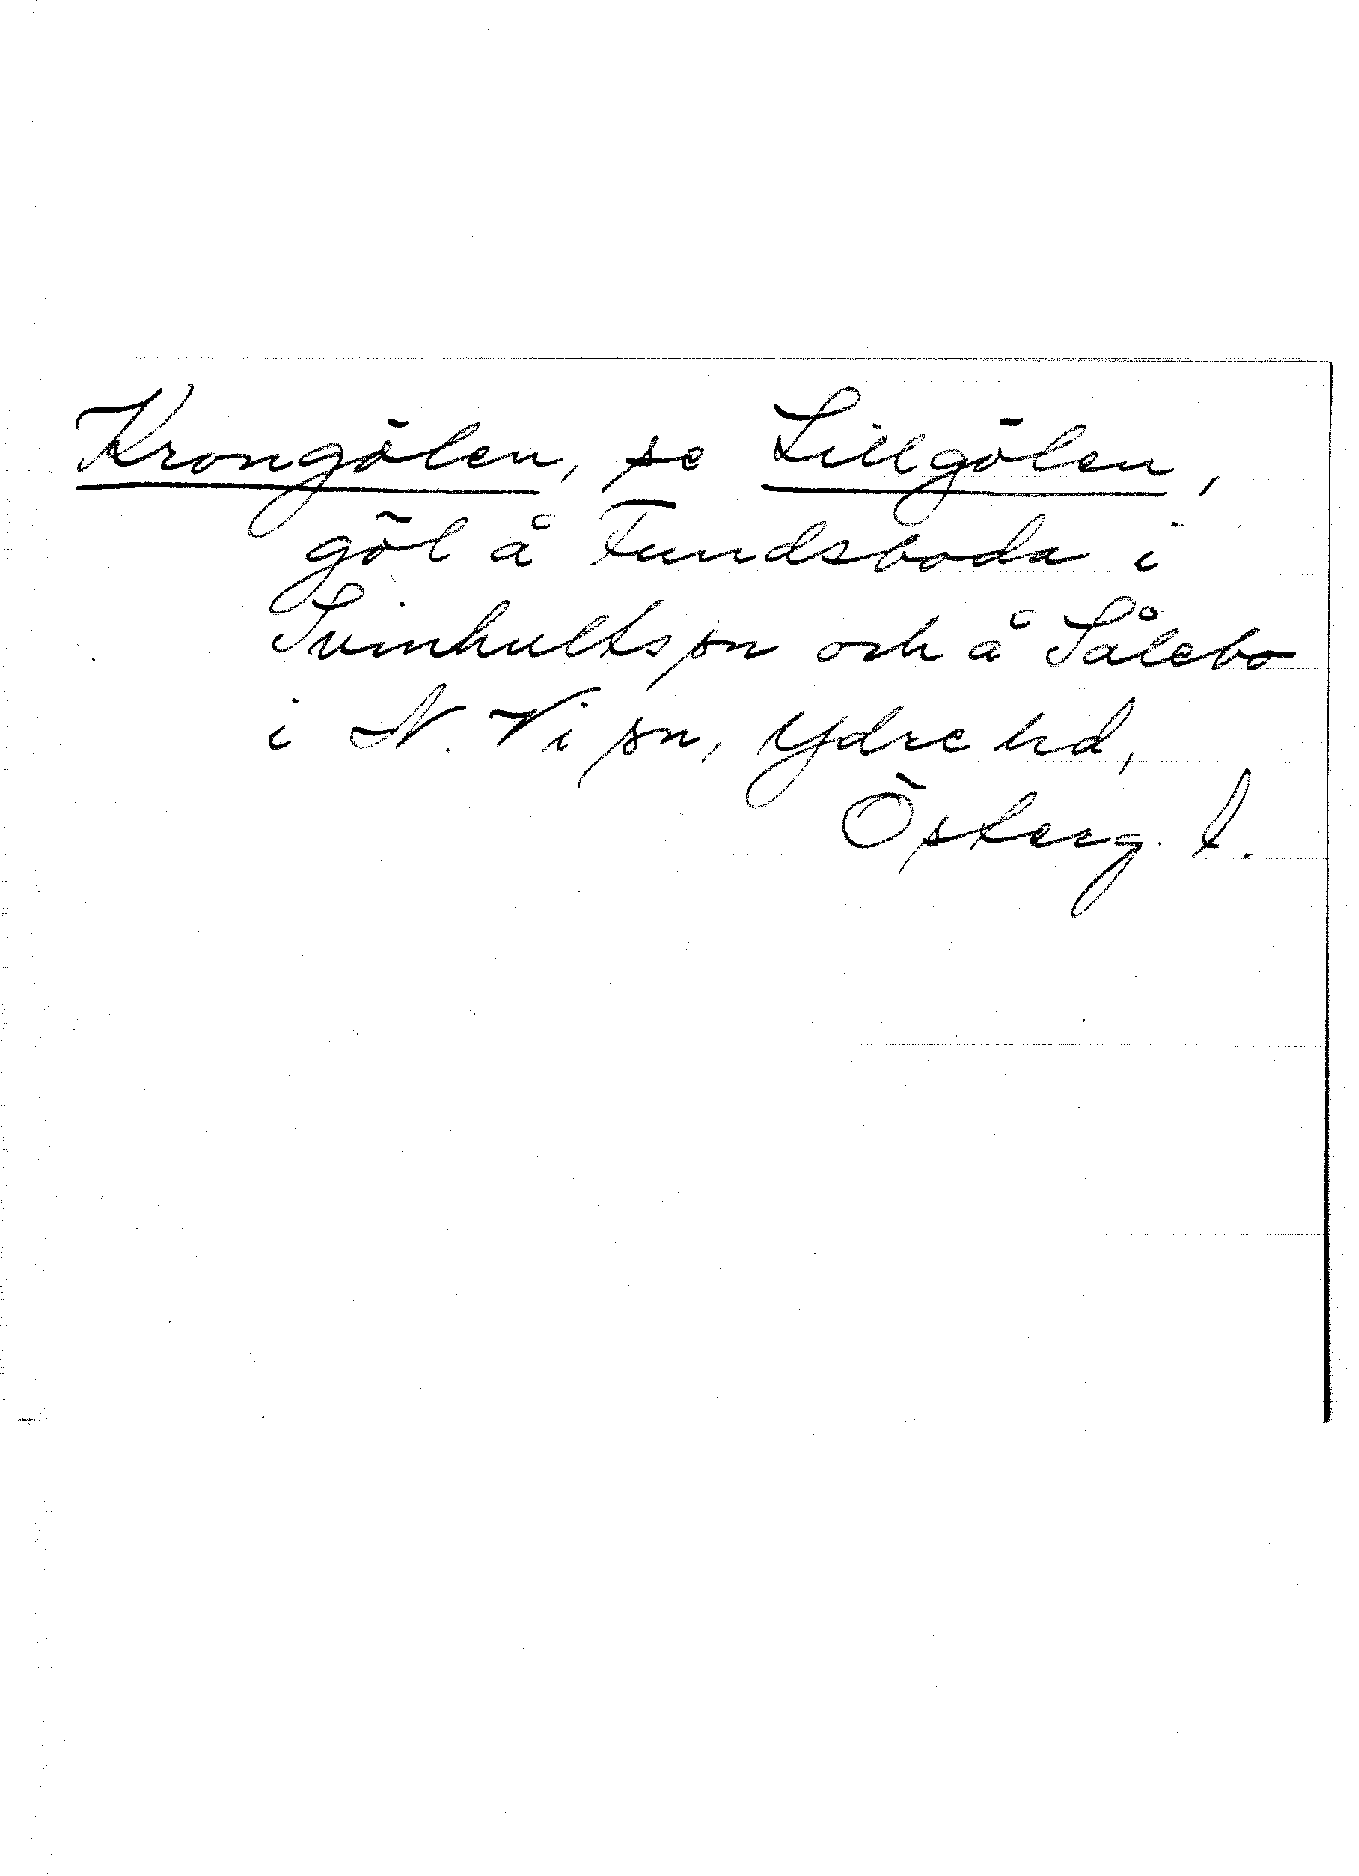 Krongölen, se Lillgölen,
göl å Fundsboda i
Svinhults sn och å Sålebo
i N. Vi sn, Ydre hd,
Österg. l.